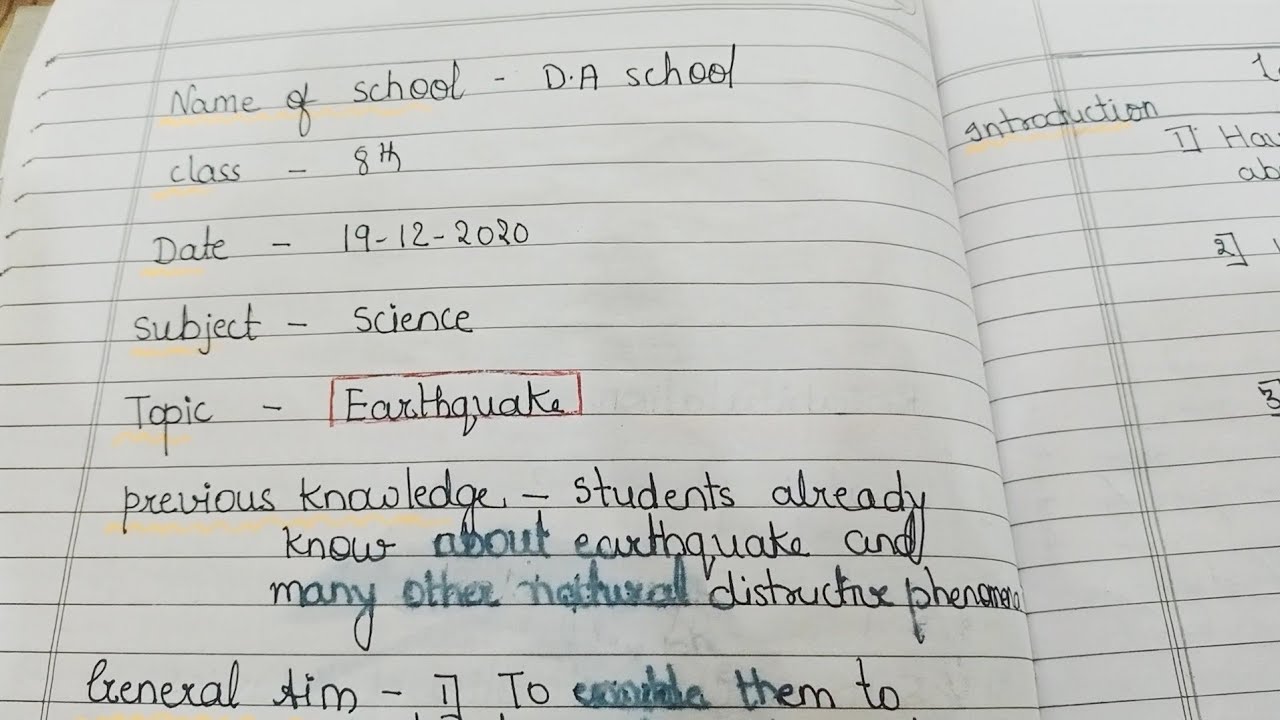 Name of school - D.A school
class - 8th
Date - 19-12-2020
Subject - Science
Topic - Earthquake
previous knowledge - students already
know about earthquake and
many other natural distructive phenomena
General Aim - 1] To enable them to
Introduction
1] Hav
ab
2]
3